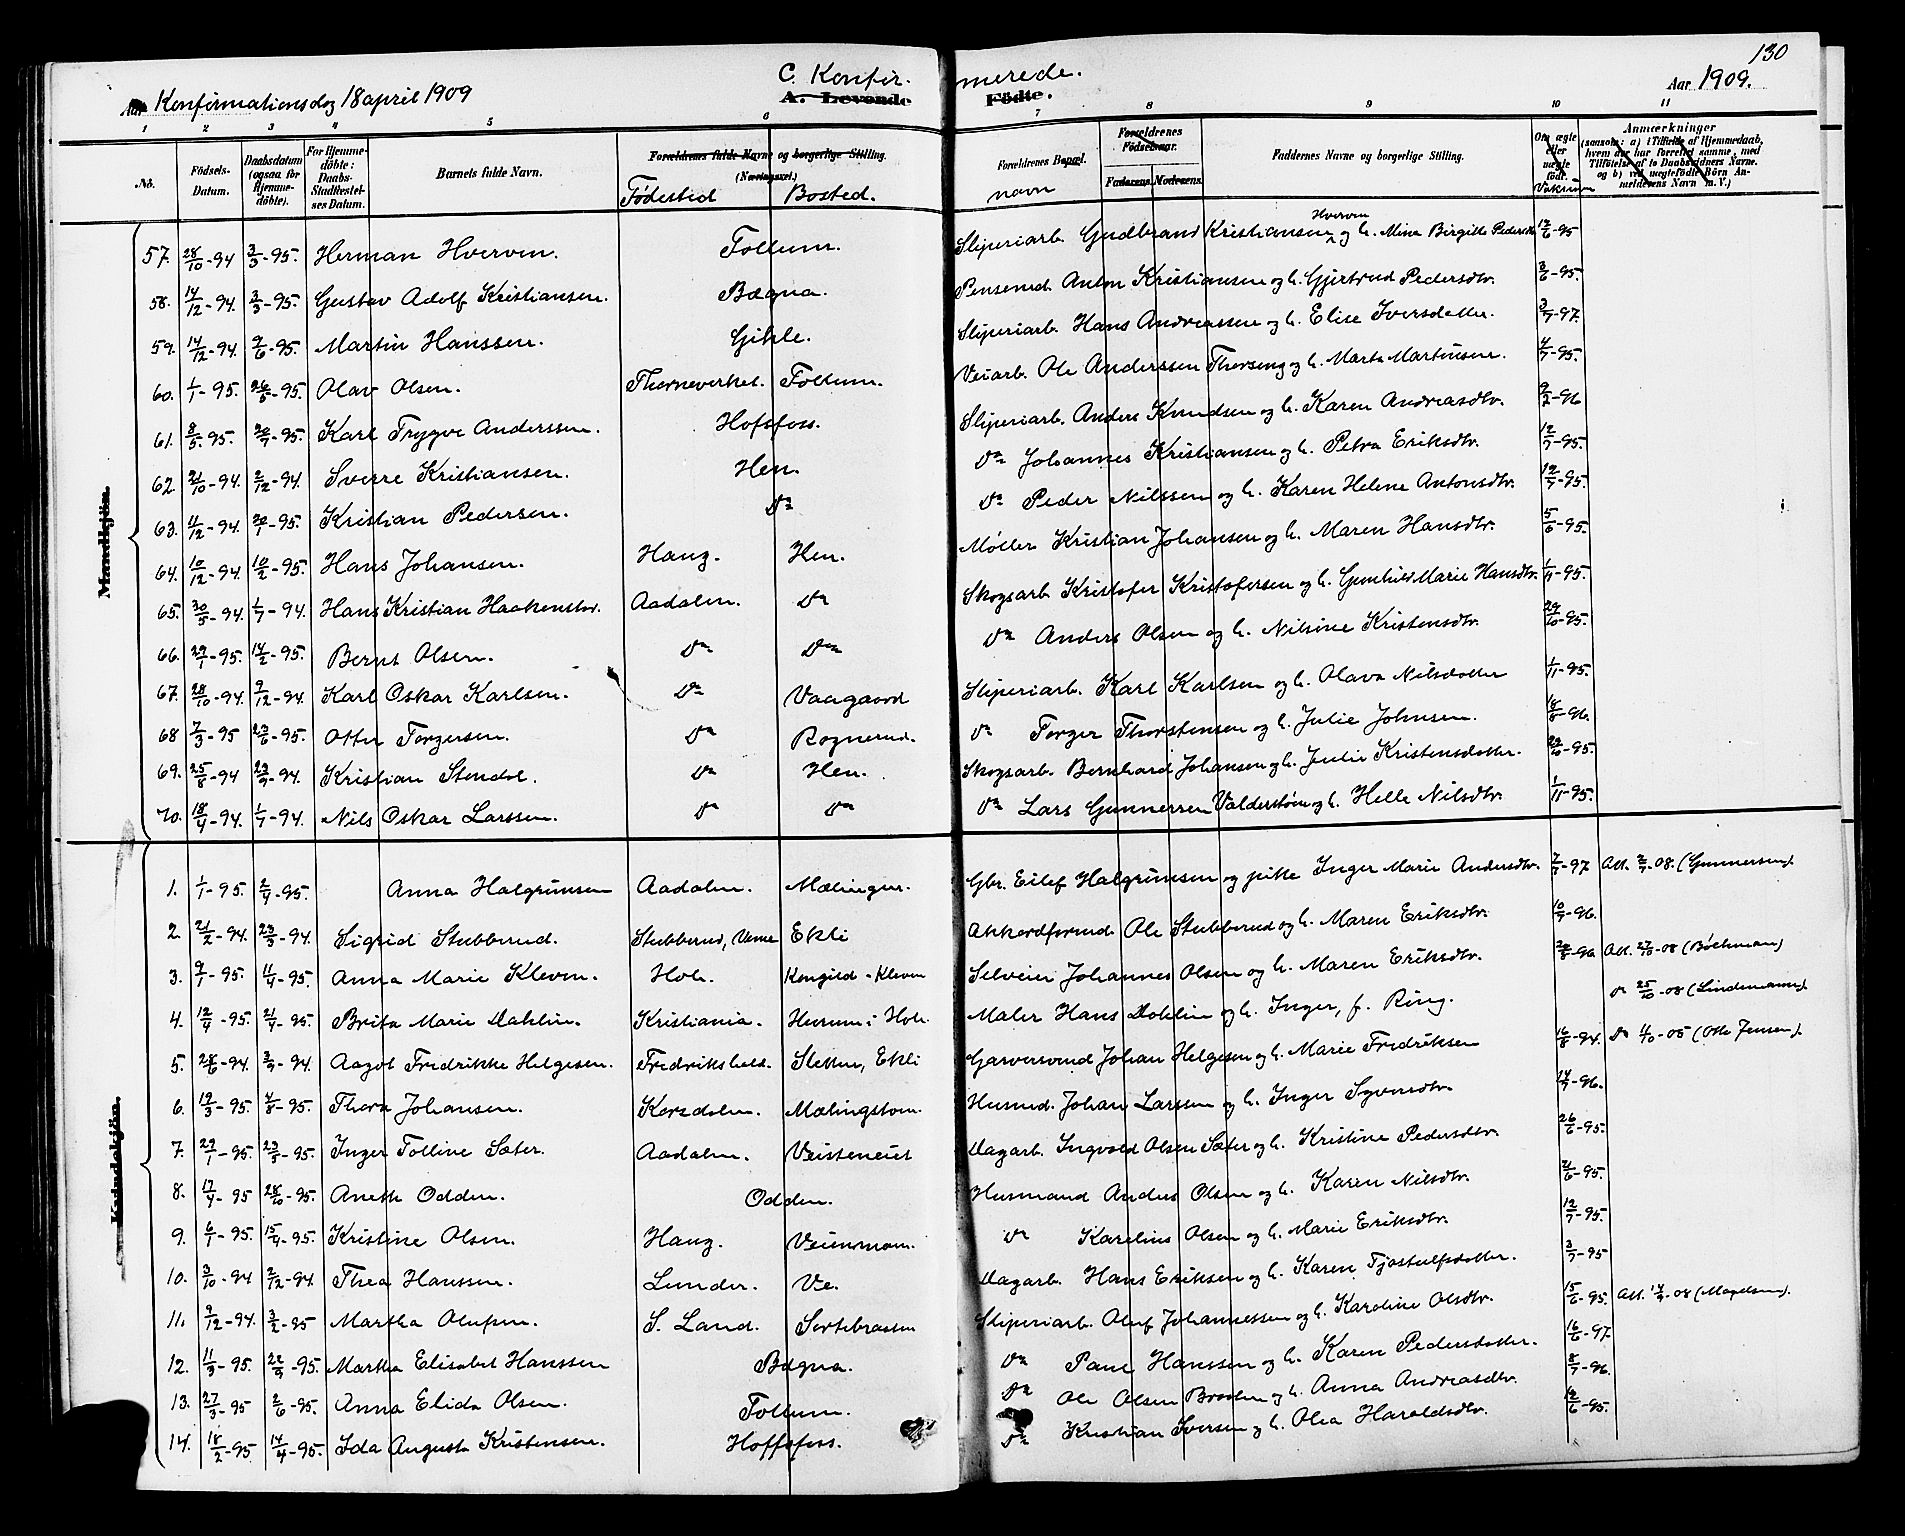 130
C. Konfirmerede.
Aar Konfirmationsdag 18 april 1909
A. Levende Födte.
Aar 1909.
1 2 3 4 5 6 7 8 9 10 11
No. Födsels-Datum. Daabsdatum (ogsaa for Hjemmedöbte). For Hjemmedöbte: Daabs-Stadfæstelses Datum. Barnets fulde Navn. Forældrenes fulde Navne og borgerlige Stilling. (Næringsvei.) Födested Bosted. Forældrenes Bopæl. navn Forældrenes Födselsaar. Faderens. Moderens. Faddernes Navne og borgerlige Stilling. Om ægte eller uægte födt. Vaksinen Anmærkninger (saasom: a) i Tilfælde af Hjemmedaab, hvem der har forrettet samme, med Tilföielse af to Daabsvidners Navne. og b) ved uegtefödte Börn Anmelderens Navn m. V.)
Mandkjön.
57. 28/10-94 3/3-95. Herman Hverven. Follum. Sliperiarb. Gudbrand Kristiansen Hverven og h. Mina Birgitte Pedersdtr 12/6-95
58. 14/12-94. 3/3-95. Gustav Adolf Kristiansen. Bægna. Pensemd. Anton Kristiansen og h. Gjertrud Pedersdtr. 3/6-95.
59. 14/12-94. 9/6-95. Martin Hanssen. Gihle. Sliperiarb. Hans Andreassen og h. Elise Iversdatter. 3/7-97.
60. 1/1-95. 26/5-95. Olav Olsen. Thorneverket. Follum. Veiarb. Ole Anderssen Thorseng og h. Marte Martinsen. 4/7-95.
61. 8/5-95. 20/7-95. Karl Trygve Anderssen. Hofsfoss. Sliperiarb. Anders Knudsen og h. Karen Andreasdtr. 9/2-96
62. 21/10-94. 2/12-94. Sverre Kristiansen. Hen. Do Johannes Kristiansen og h. Petra Eriksdtr. 12/7-95.
63. 11/12-94. 20/1-95. Kristian Pedersen. Do Do Peder Nilssen og h. Karen Helene Antonsdtr. 12/7-95.
64. 10/12-94. 10/2-95. Hans Johansen. Haug. Hen. Møller Kristian Johansen og h. Maren Hansdtr. 5/6-95.
65. 30/5-94. 1/7-94. Hans Kristian Haakenstad. Aadalen. Do Skogsarb. Kristofer Kristofersen og h. Gunhild Marie Hansdtr. 1/11-95.
66. 29/1-95. 14/2-95. Bernt Olsen. Do Do Do Anders Olsen og h. Nilsine Kristensdtr. 29/10-95.
67. 28/10-94. 9/12-94. Karl Oskar Karlsen. Do Vaagaard Sliperiarb. Karl Karlsen og h. Olava Nilsdatter 1/11-95.
68 7/3-95 23/6-95. Otto Torgersen. Do Rognerud. Do Torger Thorstensen og h. Julie Johnsen. 18/8-96.
69. 25/8-94 23/9-94. Kristian Stendal. Do Hen. Skogsarb. Bernhard Johansen og h. Julie Kristensdatter. 29/10-95.
70. 18/4-94. 1/7-94. Nils Oskar Larssen. Do Do Do Lars Gunnersen Valderstøen og h. Helle Nilsdtr. 1/11-95.
Kvindekjön.
1. 1/1-95. 2/4-95. Anna Halgrimsen Aadalen. Mælingen. Gbr. Eilef Halgrimsen og pike Inger Marie Andersdtr. 7/7-97 Att. 2/7-08. (Gunnersen).
2. 21/2-94. 23/3-94. Sigrid Stubberud. Stubberud, Veme Ekli Akkordformd. Ole Stubberud og h. Maren Eriksdtr. 10/7-96.
3. 9/1-95. 11/4-95. Anna Marie Kleven. Hole. Kongild-Kleven Selveier Johannes Olsen og h. Maren Eriksdtr. 28/8-96 Att. 27/10-08 (Böckman)
4. 12/4-95. 21/4-95. Brita Marie Dahlin. Kristiania. Hurum i Hole. Maler Hans Dahlin og h. Inger, f. Ring. Do 25/10-08 (Lindemann).
5. 28/6-94 3/9-94. Aagot Fredrikke Helgesen. Fredrikshald. Sletten, Ekli Garversvend Johan Helgesen og h. Marie Fredriksen 16/8-94. Do 11/10-05 (Otto Jensen).
6. 19/3-95. 4/8-95. Thora Johansen. Korsdalen. Mælingstom. Husmd. Johan Larssen og h. Inger Syversdtr. 14/7-96.
7. 29/1-95 23/5-95. Inger Folline Sæter. Aadalen. Veisteneiet Dagarb. Ingvald Olsen Sæter og h. Kristine Pedersdtr. 26/6-95.
8. 17/4-95 28/10-95. Anette Odden. Odden. Husmand Anders Olsen og h. Karen Nilsdtr. 21/6-95.
9. 6/1-95. 15/4-95. Kristine Olsen. Haug. Veienmoen. Do Karelius Olsen og h. Marie Eriksdtr. 12/7-95.
10. 3/10-94 2/12-94. Thea Hanssen. Lunder. Ve. Dagarb. Hans Eriksen og h. Karen Tjostulfsdatter. 3/7-95
11. 9/12-94. 3/2-95 Martha Olufsen. S. Land. Sortebraaten Sliperiarb. Oluf Johannessen og h. Karoline Olsdtr. 15/6-95. Att. 14/9-08 (Magelsen).
12. 11/3-95. 22/9-95. Martha Elisabet Hanssen Bægna. Do Paul Hanssen og h. Karen Pedersdatter. 16/6-97.
13. 27/3-95 2/6-95. Anna Elida Olsen. Follum. Do Ole Olsen Braaten og h. Anna Andreasdtr. 8/7-96.
14. 18/2-95. 14/4-95. Ida Augusta Kristensen. Hoffsfoss. Do Kristian Iversen og h. Olea Haraldsdtr. 12/6-95.